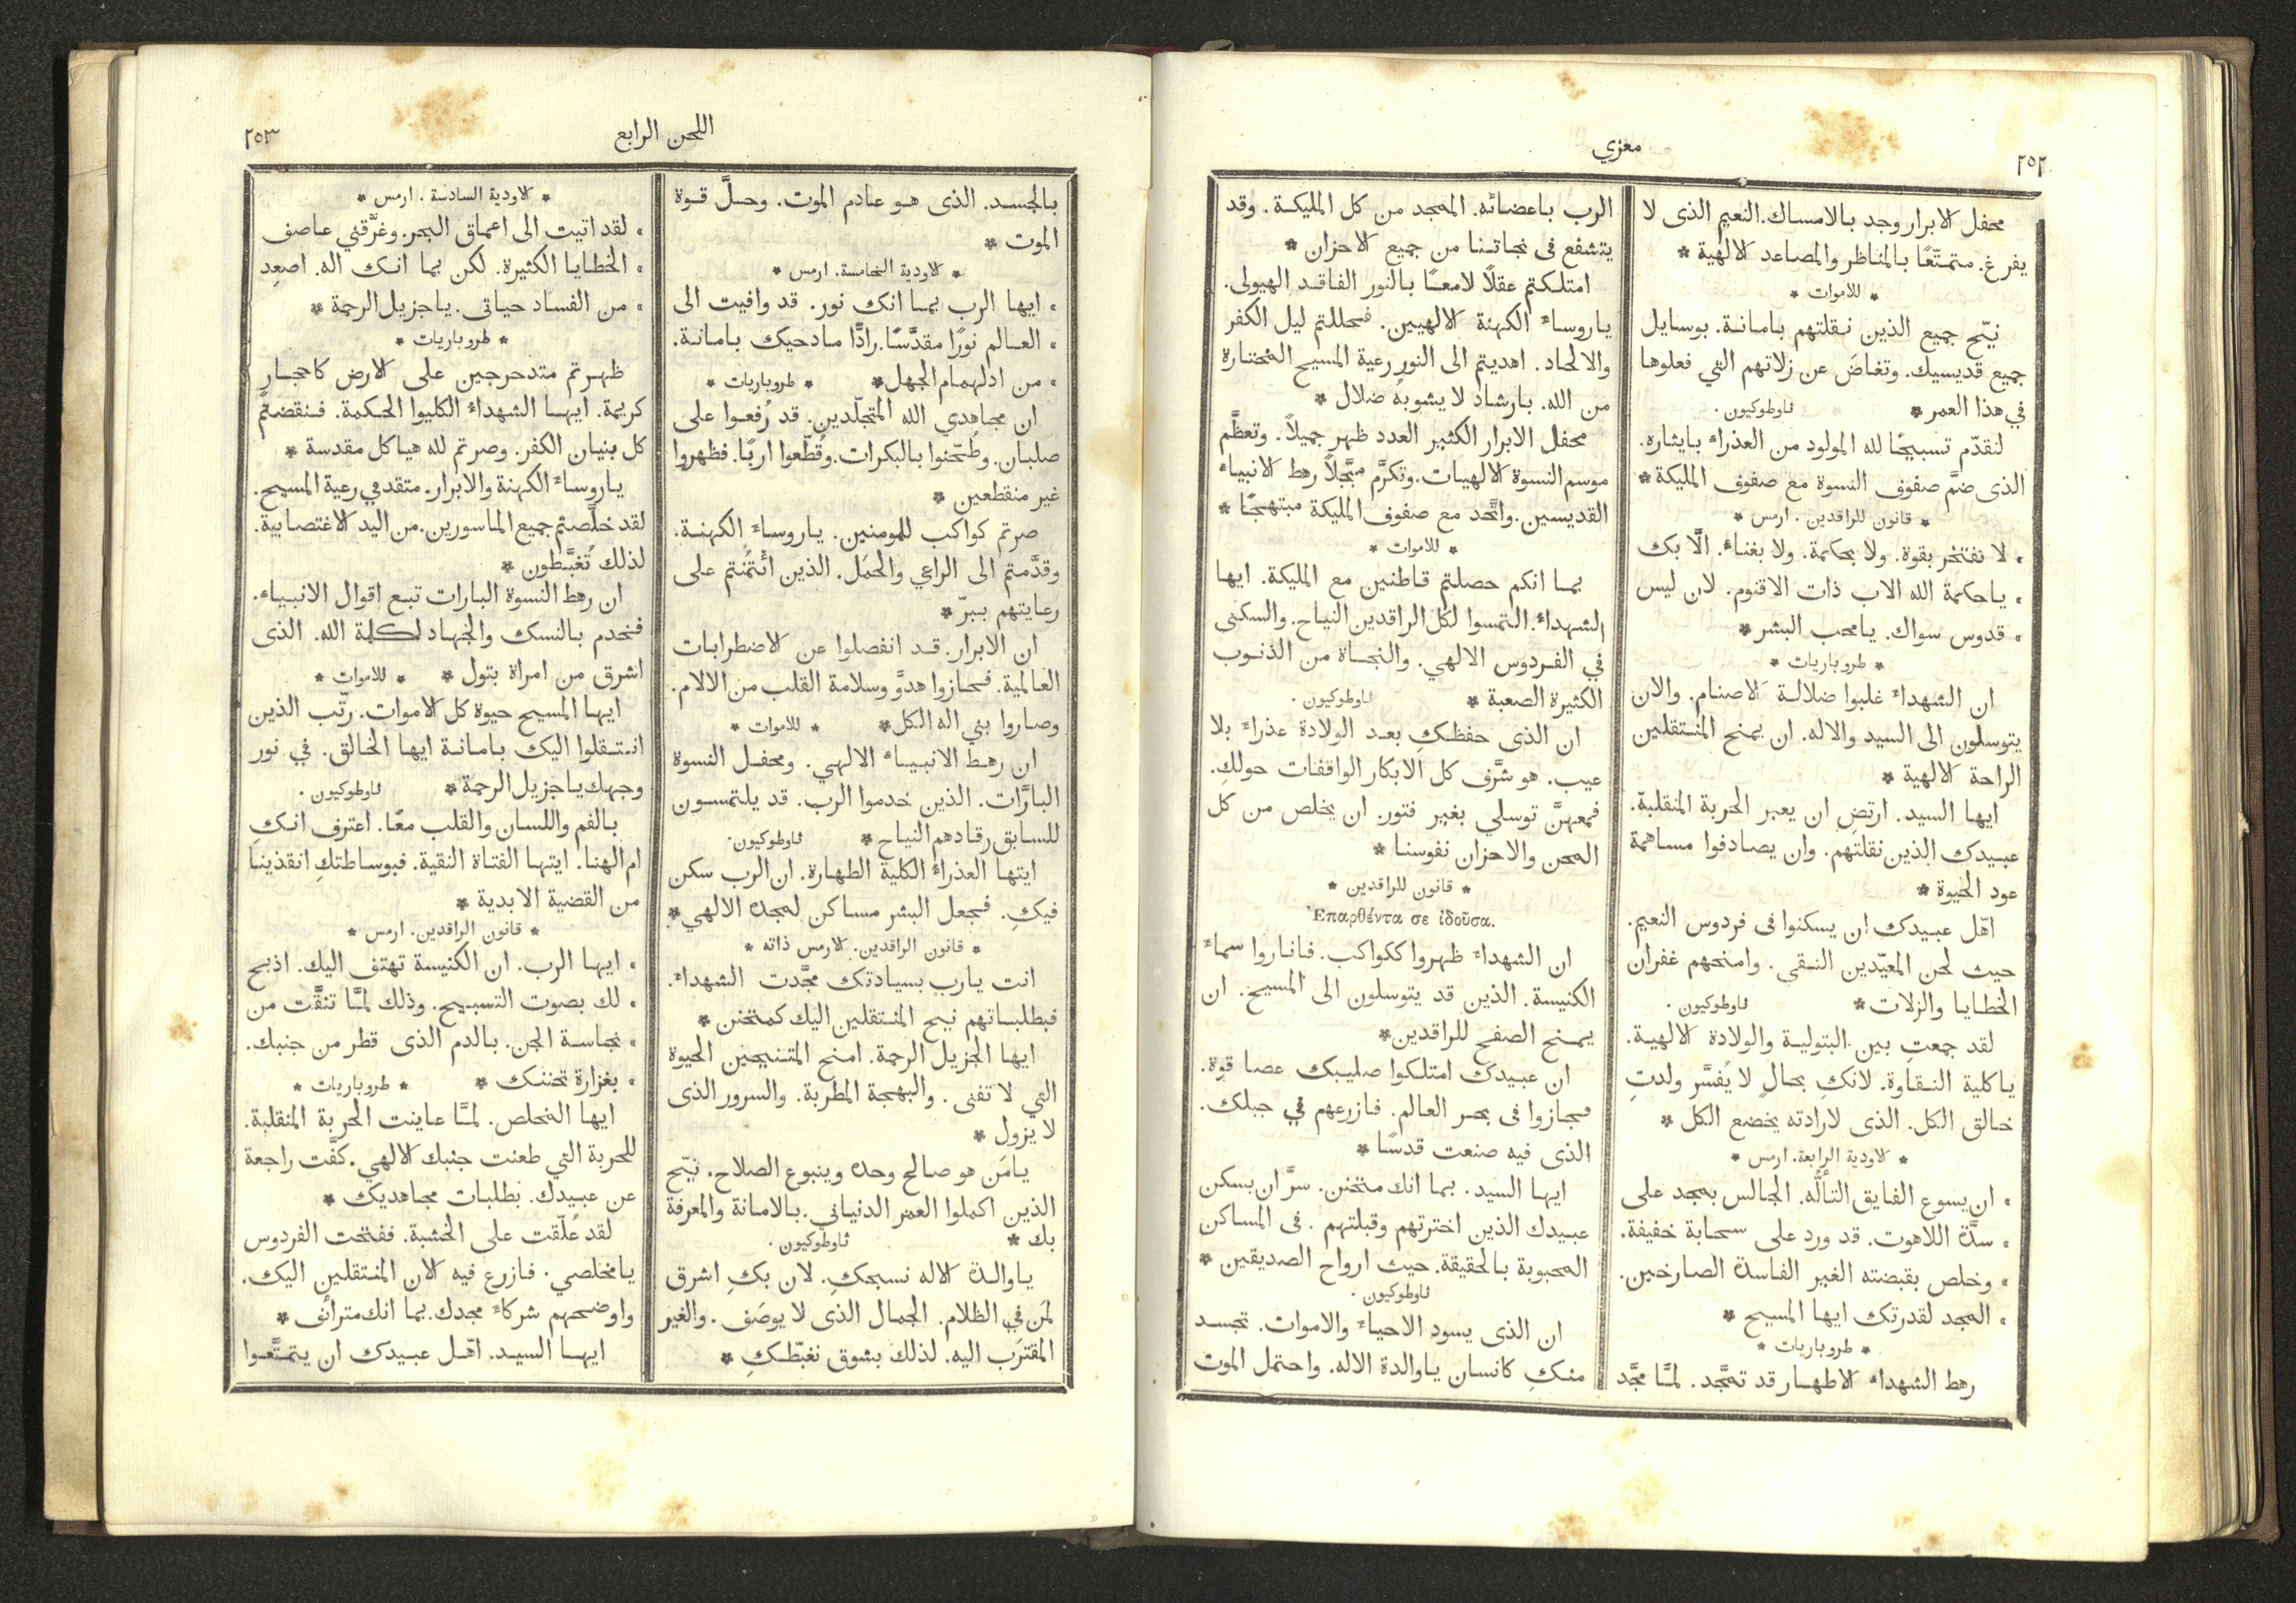 ٢٥٢
معزي
محفل الابرار وجد بالامساك. النعيم الذى لا
يفرغ. متمتّعًا بالمناظر والمصاعد الالهية *
* للاموات *
نيّح جميع الذين نقلتهم بامانة. بوسايل
جميع قديسيك. وتغاضَ عن زلاتهم التي فعلوها
في هذا العمر * ثاوطوكيون.
لنقدّم تسبيحًا لله المولود من العذراء بايثاره.
الذى ضمَّ صفوف النسوة مع صفوف المليكة *
* قانون للراقدين. ارمس *
» لا نفتخر بقوة. ولا بحكمة. ولا بغناء. الَّا بك
» ياحكمة الله الاب ذات الاقنوم. لان ليس
» قدوس سواك. يامحب البشر *
* طروباريات *
ان الشهداء غلبوا ضلالة الاصنام. والان
يتوسلون الى السيد والاله. ان يمنح المنتقلين
الراحة الالهية *
ايها السيد. ارتضِ ان يعبر الحربة المنقلبة.
عبيدك الذين نقلتهم. وان يصادفوا مساهمة
عود الحيوة *
اهّل عبيدك ان يسكنوا فى فردوس النعيم.
حيث لحن المعيّدين النقى. وامنحهم غفران
الخطايا والزلات * ثاوطوكيون.
لقد جمعتِ بين البتولية والولادة الالهية.
ياكلية النقاوة. لانكِ بحالٍ لا يُفسَّر ولدتِ
خالق الكل. الذى لارادته يخضع الكل *
* الاودية الرابعة. ارمس *
» ان يسوع الفايق التألُّه. الجالس بمجد على
» سدَّة اللاهوت. قد ورد على سحابة خفيفة.
» وخلص بقبضته الغير الفاسدة الصارخين.
» المجد لقدرتك ايها المسيح *
* طروباريات *
رهط الشهداء الاطهار قد تمجَّد. لمَّا مجَّد
الرب باعضائه. الممجد من كل المليكة. وقد
يتشفع فى نجاتنا من جميع الاحزان *
امتلكتم عقلًا لامعًا بالنور الفاقد الهيولى.
ياروساء الكهنة الالهيين. فحللتم ليل الكفر
والالحاد. اهديتم الى النور رعية المسيح المختارة
من الله. بارشاد لا يشوبهُ ضلال *
محفل الابرار الكثير العدد ظهر جميلًا. وتعظَّم
موسم النسوة الالهيات. وتكرَّم مبجَّلًا رهط الانبياء
القديسين. واتَّحد مع صفوف المليكة مبتهجًا *
* للاموات *
بما انكم حصلتم قاطنين مع المليكة. ايها
الشهداء. التمسوا لكل الراقدين النياح. والسكنى
في الفردوس الالهي. والنجاة من الذنوب
الكثيرة الصعبة * ثاوطوكيون.
ان الذى حفظكِ بعد الولادة عذراء بلا
عيب. هو شرَّف كل الابكار الواقفات حولكِ.
فمعهنَّ توسلي بغير فتور. ان يخلص من كل
المحن والاحزان نفوسنا *
* قانون للراقدين *
Ἐπαρθέντα σε ἰδοῦσα.
ان الشهداء ظهروا ككواكب. فاناروا سماء
الكنيسة. الذين قد يتوسلون الى المسيح. ان
يمنح الصفح للراقدين *
ان عبيدك امتلكوا صليبك عصا قوة.
فجازوا فى بحر العالم. فازرعهم في جبلك.
الذى فيه صنعت قدسًا *
ايها السيد. بما انك متحنن. سرَّ ان يسكن
عبيدك الذين اخترتهم وقبلتهم. فى المساكن
المحبوبة بالحقيقة. حيث ارواح الصديقين *
ثاوطوكيون.
ان الذى يسود الاحياء والاموات. تجسد
منكِ كانسان ياوالدة الاله. واحتمل الموت
اللحن الرابع
٢٥٣
بالجسد. الذى هو عادم الموت. وحلَّ قوة
الموت *
* الاودية الخامسة. ارمس *
» ايها الرب بما انك نور. قد وافيت الى
» العالم نورًا مقدَّسًا. رادًّا مادحيك بامانة.
» من ادلهمام الجهل * * طروباريات *
ان مجاهدي الله المتجلّدين. قد رُفعوا على
صلبان. وطُحّنوا بالبكرات. وقُطّعوا اربًا. فظهروا
غير منقطعين *
صرتم كواكب للمومنين. ياروساء الكهنة.
وقدَّمتم الى الراعي والحمَل. الذين ائْتُمنتم على
رعايتهم ببرّ *
ان الابرار. قد انفصلوا عن الاضطرابات
العالمية. فحازوا هدوَّ وسلامة القلب من الالام.
وصاروا بني اله الكل * * للاموات *
ان رهط الانبياء الالهي. ومحفل النسوة
البارَّات. الذين خدموا الرب. قد يلتمسون
للسابق رقادهم النياح * ثاوطوكيون.
ايتها العذراء الكلية الطهارة. ان الرب سكن
فيكِ. فجعل البشر مساكن لمجده الالهي *
* قانون الراقدين. الارمس ذاته *
انت يارب بسيادتك مجَّدت الشهداء.
فبطلباتهم نيح المنتقلين اليك كمتحنن *
ايها الجزيل الرحمة. امنح المتنيحين الحيوة
التي لا تفنى. والبهجة المطربة. والسرور الذى
لا يزول *
يامَن هو صالح وحده وينبوع الصلاح. نيّح
الذين اكملوا العمر الدنياني. بالامانة والمعرفة
بك * ثاوطوكيون.
ياوالدة الاله نسبحكِ. لان بكِ اشرق
لمَن في الظلام. الجمال الذى لا يوصَف. والغير
المقترَب اليه. لذلك بشوق نغبّطكِ *
* الاودية السادسة. ارمس *
» لقد اتيت الى اعماق البحر. وغرَّقني عاصف
» الخطايا الكثيرة. لكن بما انك اله. اصعِد
» من الفساد حياتى. ياجزيل الرحمة *
* طروباريات *
ظهرتم متدحرجين على الارض كاحجارٍ
كريمة. ايها الشهداء الكليوا الحكمة. فنقضتم
كل بنيان الكفر. وصرتم لله هياكل مقدسة *
ياروساء الكهنة والابرار. متقدمي رعية المسيح.
لقد خلَّصتم جميع الماسورين. من اليد الاغتصابية.
لذلك تُغبَّطون *
ان رهط النسوة البارات تبع اقوال الانبياء.
فخدم بالنسك والجهاد لكلمة الله. الذى
اشرق من امراة بتول * * للاموات *
ايها المسيح حيوة كل الاموات. رتّب الذين
انتقلوا اليك بامانة ايها الخالق. في نور
وجهك ياجزيل الرحمة * ثاوطوكيون.
بالفم واللسان والقلب معًا. اعترف انكِ
ام الهنا. ايتها الفتاة النقية. فبوساطتكِ انقذينا
من القضية الابدية *
* قانون الراقدين. ارمس *
» ايها الرب. ان الكنيسة تهتف اليك. اذبح
» لك بصوت التسبيح. وذلك لمَّا تنقَّت من
» نجاسة الجن. بالدم الذى قطر من جنبك.
» بغزارة تحننك * * طروباريات *
ايها المخلص. لمَّا عاينت الحربة المنقلبة.
للحربة التي طعنت جنبك الالهي. كفَّت راجعة
عن عبيدك. بطلبات مجاهديك *
لقد عُلّقت على الخشبة. ففتحت الفردوس
يامخلصي. فازرع فيه الان المنتقلين اليك.
واوضحهم شركاء مجدك. بما انك مترائف *
ايها السيد. اهّل عبيدك ان يتمتَّعوا